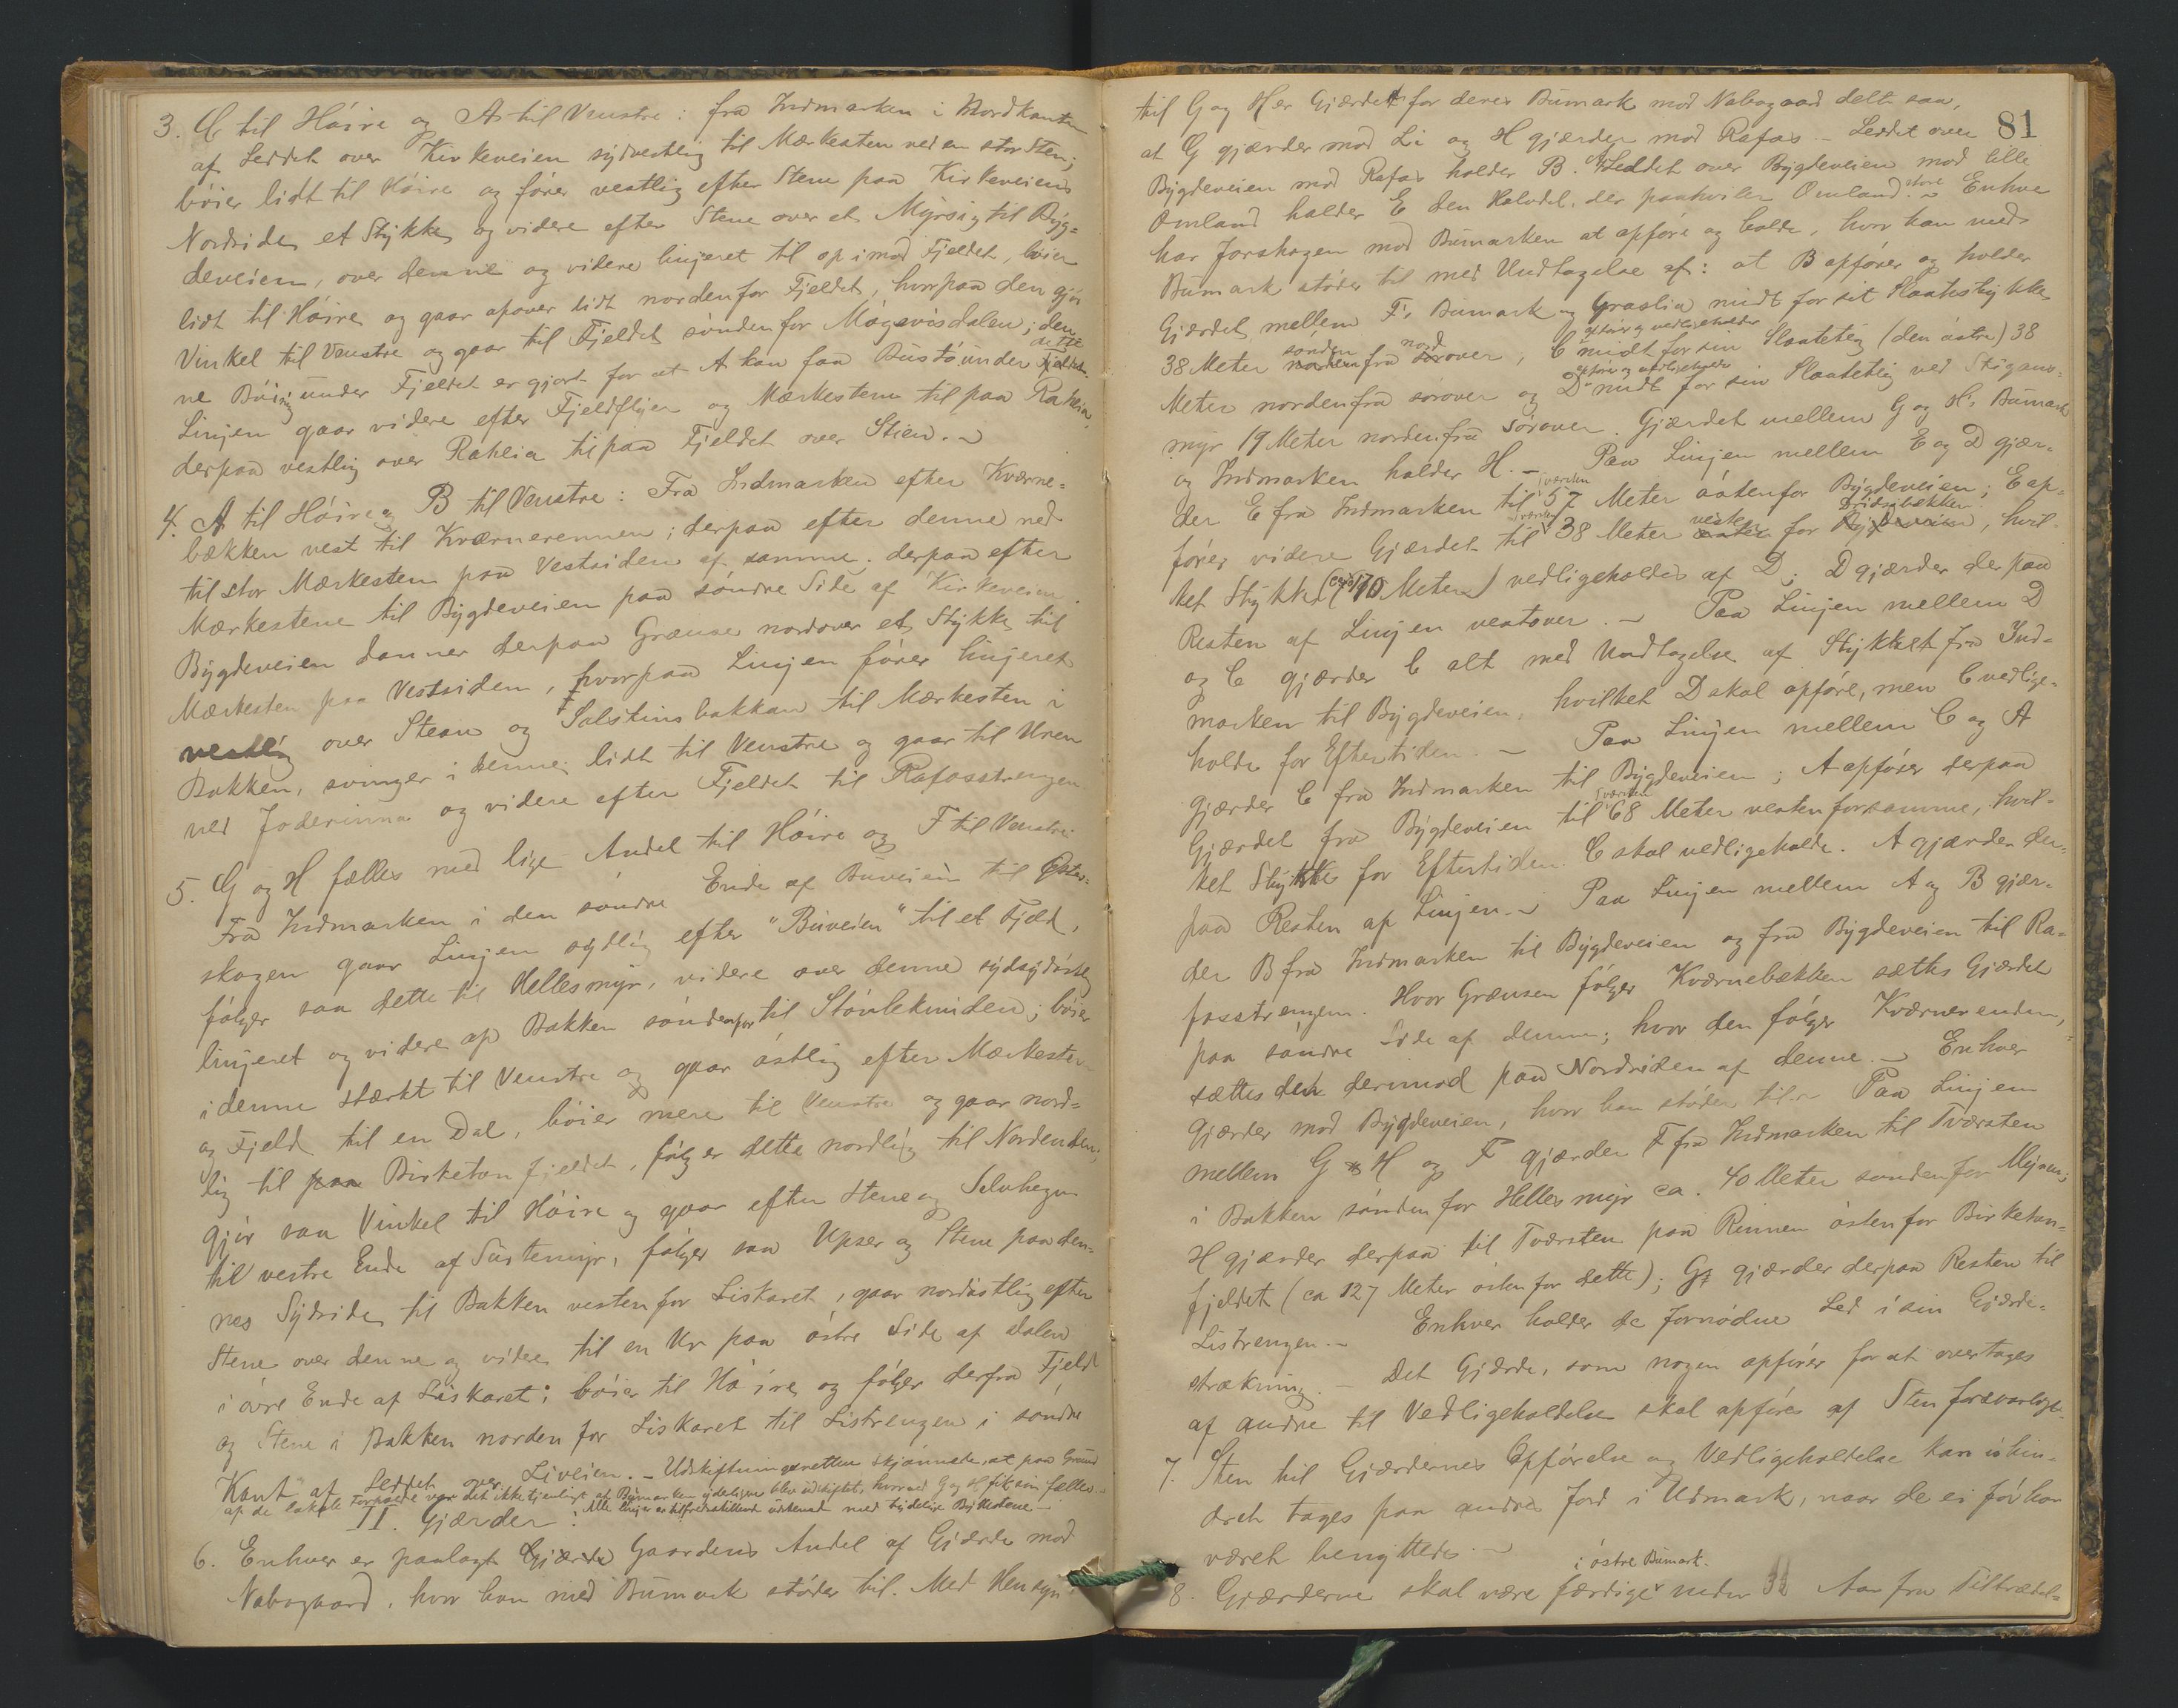 3. C til Høire og A til Venstre: fra Indmarken i Nordkanten
af Leddet over Kirkeveien sydvestlig til Mærkesten ved en stor Sten;
bøier lidt til Høire og fører vestlig efter Stene paa Kirkeveiens
Nordside et Stykke og videre efter Stene over et Myrsig til Byg=
deveien, over denne og videre linjeret til op imod Fjeldet, bøier
lidt til Høire og gaar opover lidt nordenfor Fjeldet, hvorpaa den gjør
Vinkel til Venstre og gaar til Fjeldet søndenfor Møgevisdalen; den=
ne Bøining under Fjeldet er gjort for at A kan faa Bustø under dette
Linjen gaar videre efter Fjeldflyer og Mærkestene til paa Raheia,
derpaa vestlig over Raheia til paa Fjeldet over Stien. ~
4. A til Høire og B til Venstre: Fra Indmarken efter Kværne=
bækken vest til Kværnerennen; derpaa efter denne ned
til stor Mærkesten paa Vestsiden af samme, derpaa efter
Mærkestene til Bygdeveien paa søndre Side af Kirkeveien.
Bygdeveien danner derpaa Grænse nordover et Stykke til
Mærkesten paa Vestsiden, hvorpaa Linjen fører linjeret
vestlig over Stean og Salstinsbakkan til Mærkesten i
Bakken, svinger i denne lidt til Venstre og gaar til Uren
ved Joderinna og videre efter Fjeldet til Rafosstrengen
5. G og H fælles med lige Andel til Høire og F til Venstre:
Fra Indmarken i den søndre Ende af Buveien til Øster=
skogen gaar Linjen sydlig efter "Buveien" til et Fjeld,
følger saa dette til Hellesmyr, videre over denne sydsydøstlig
linjeret og videre op Bakken søndenfor til Stønlekniden; bøier
i denne stærkt til Venstre og gaar østlig efter Mærkesten
og Fjeld til en Dal, bøier mere til Venstre og gaar nord=
lig til paa Birketonfjeldet, følger dette nordlig til Nordenden;
gjør saa Vinkel til Høire og gaar efter Stene og Selvhegn
til vestre Ende af Sustemyr, følger saa Upser og Stene paa den=
nes Sydside til Bakken vestenfor Liskaret, gaar nordøstlig efter
Stene over denne og videre til en Ur paa østre Side af Dalen
i øvre Ende af Liskaret; bøier til Høire og følger derfra Fjeld
og Stene i Bakken norden for Liskaret til Listrengen i søndre
Kant af Leddet over Liveien. – Udskiftningsretten skjønnede, at paa Grund
af de lokale Forholde var det ikke tjenligt at Bumarken yderligere blev udskiftet, hvorved G og H fik sin fælles. –
II. Gjærder: Alle linjer er tilfredsstillende udmerket med tydelige Bylkestene –
6. Enhver er paalagt Gjærde Gaardens Andel af Gjærde mod
Nabogaard, hvor han med Bumark støder til. Med Hensyn
81
til G og H er Gjærdet for deres Bumark mod Nabogaard delt saa,
at G gjærder mod Li og H gjærder mod Rafos. – Leddet over
Bygdeveien mod Rafos holder B. Af Leddet over Bygdeveien mod lille
Omland holder E den Halvdel, der paahviler store Omland. ~ Enhver
har Jorskogen mod Bumarken at opføre og holde, hvor han med
Bumark støder til med Undtagelse af: at B opfører og holder
Gjærdet mellem F's Bumark og Graslia midt for sit Slaattestykke
38 Meter sønden fra nordover, C opfører og vedligeholder midt for sin Slaatteteig (den østre) 38
Meter nordenfra sørover og D opfører og vedligeholder midt for sin Slaatteteig ved Stigans=
myr 19 Meter nordenfra sørover. Gjærdet mellem G og H's Bumark
og Indmarken holder H. – Paa Linjen mellem E og D gjær=
der E fra Indmarken til Tværsten 57 Meter østenfor Bygdeveien; E op=
fører videre Gjærdet til Tværsten 38 Meter vesten for Driksbækken, hvil=
ket Stykke (ca 170 Meter) vedligeholdes af D; D gjærder derpaa
Resten af Linjen vestover. ~ Paa Linjen mellem D
og C gjærder C alt med Undtagelse af Stykket fra Ind=
marken til Bygdeveien, hvilket D skal opføre, men C vedlige=
holde for Eftertiden. – Paa Linjen mellem C og A
gjærder C fra Indmarken til Bygdeveien; A opfører derpaa
Gjærdet fra Bygdeveien til Tværsten 68 Meter vestenfor samme, hvil=
ket Stykke for Eftertiden C skal vedligeholde. A gjærder der=
paa Resten af Linjen. ~ Paa Linjen mellem A og B gjær=
der B fra Indmarken til Bygdeveien og fra Bygdeveien til Ra=
fosstrengen. Hvor Grænsen følger Kværnebækken sættes Gjærdet
paa søndre Side af denne; hvor den følger Kværnerenden,
sættes det derimod paa Nordsiden af denne. ~ Enhver
Gjærder mod Bygdeveien, hvor han støder til. ~ Paa Linjen
mellem G og H og F gjærder F fra Indmarken til Tværsten
i Bakken sønden for Hellesmyr ca. 40 Meter søndenfor Myren;
H gjærder derpaa til Tværsten paa Rinnen østenfor Birketon=
fjeldet (ca 127 Meter østenfor dette); G gjærder derpaa Resten til
Listrengen. ~ Enhver holder de fornødne Led i sin Gjærde=
strækning. – Det Gjærde, som nogen opfører for at overtages
af andre til Vedligeholdelse skal opføres af Sten forsvarligt.
7. Sten til Gjærdernes Opførelse og Vedligeholdelse kan uhin=
dret tages paa andres Jord i Udmark, naar de ei før har
været benyttede. ~
8. Gjærderne skal være færdige i østre Bumark. inden 3½ Aar fra Tiltrædel=